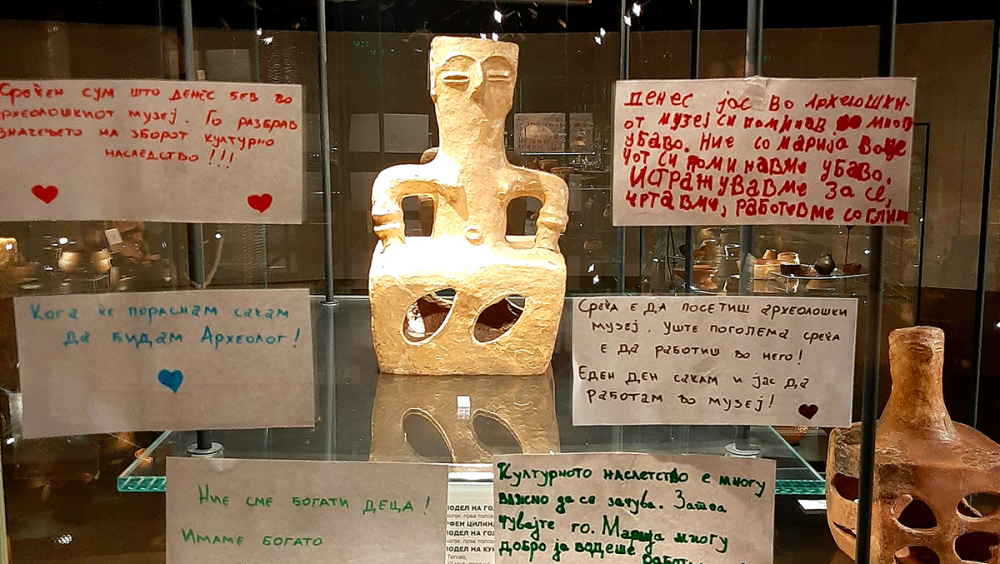 Среќен сум што денес бев во
археолошкиот музеј. Го разбрав
значењето на зборот културно
наследство!!!
Денес јас во археолошки-
от музеј си поминав многу
убаво. Ние со Марија
си поминавме убаво,
истражувавме за се,
цртавме, работевме со глин
Кога ќе пораснам сакам
да бидам Археолог!
Среќа е да посетиш археолошки
музеј. Уште поголема среќа
е да работиш во него!
Еден ден сакам и јас да
работам во музеј!
Ние сме богати деца!
Имаме богато
Културното наслетство е многу
важно да се зачува. Затоа
чувајте го. Марија многу
добро ја водеше работ
ОДЕЛ НА ГО
ФЕН ЦИЛИН
ОДЕЛ НА КУ
Тетово,